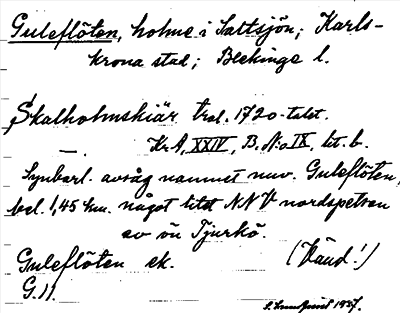 Guleflöten, holme i Saltsjön; Karls-
krona stad; Blekinge l.
Skalholmskiär trol. 1720-talet.
Kr.A, XXIV, B, N:o IX, lit. b.
Synbarl. avsåg namnet nuv. Guleflöten,
bel. 1,45 km. något litet NNV nordspetsen
av ön Tjurkö.
Guleflöten ek. (Vänd!)
G.11.
1927.